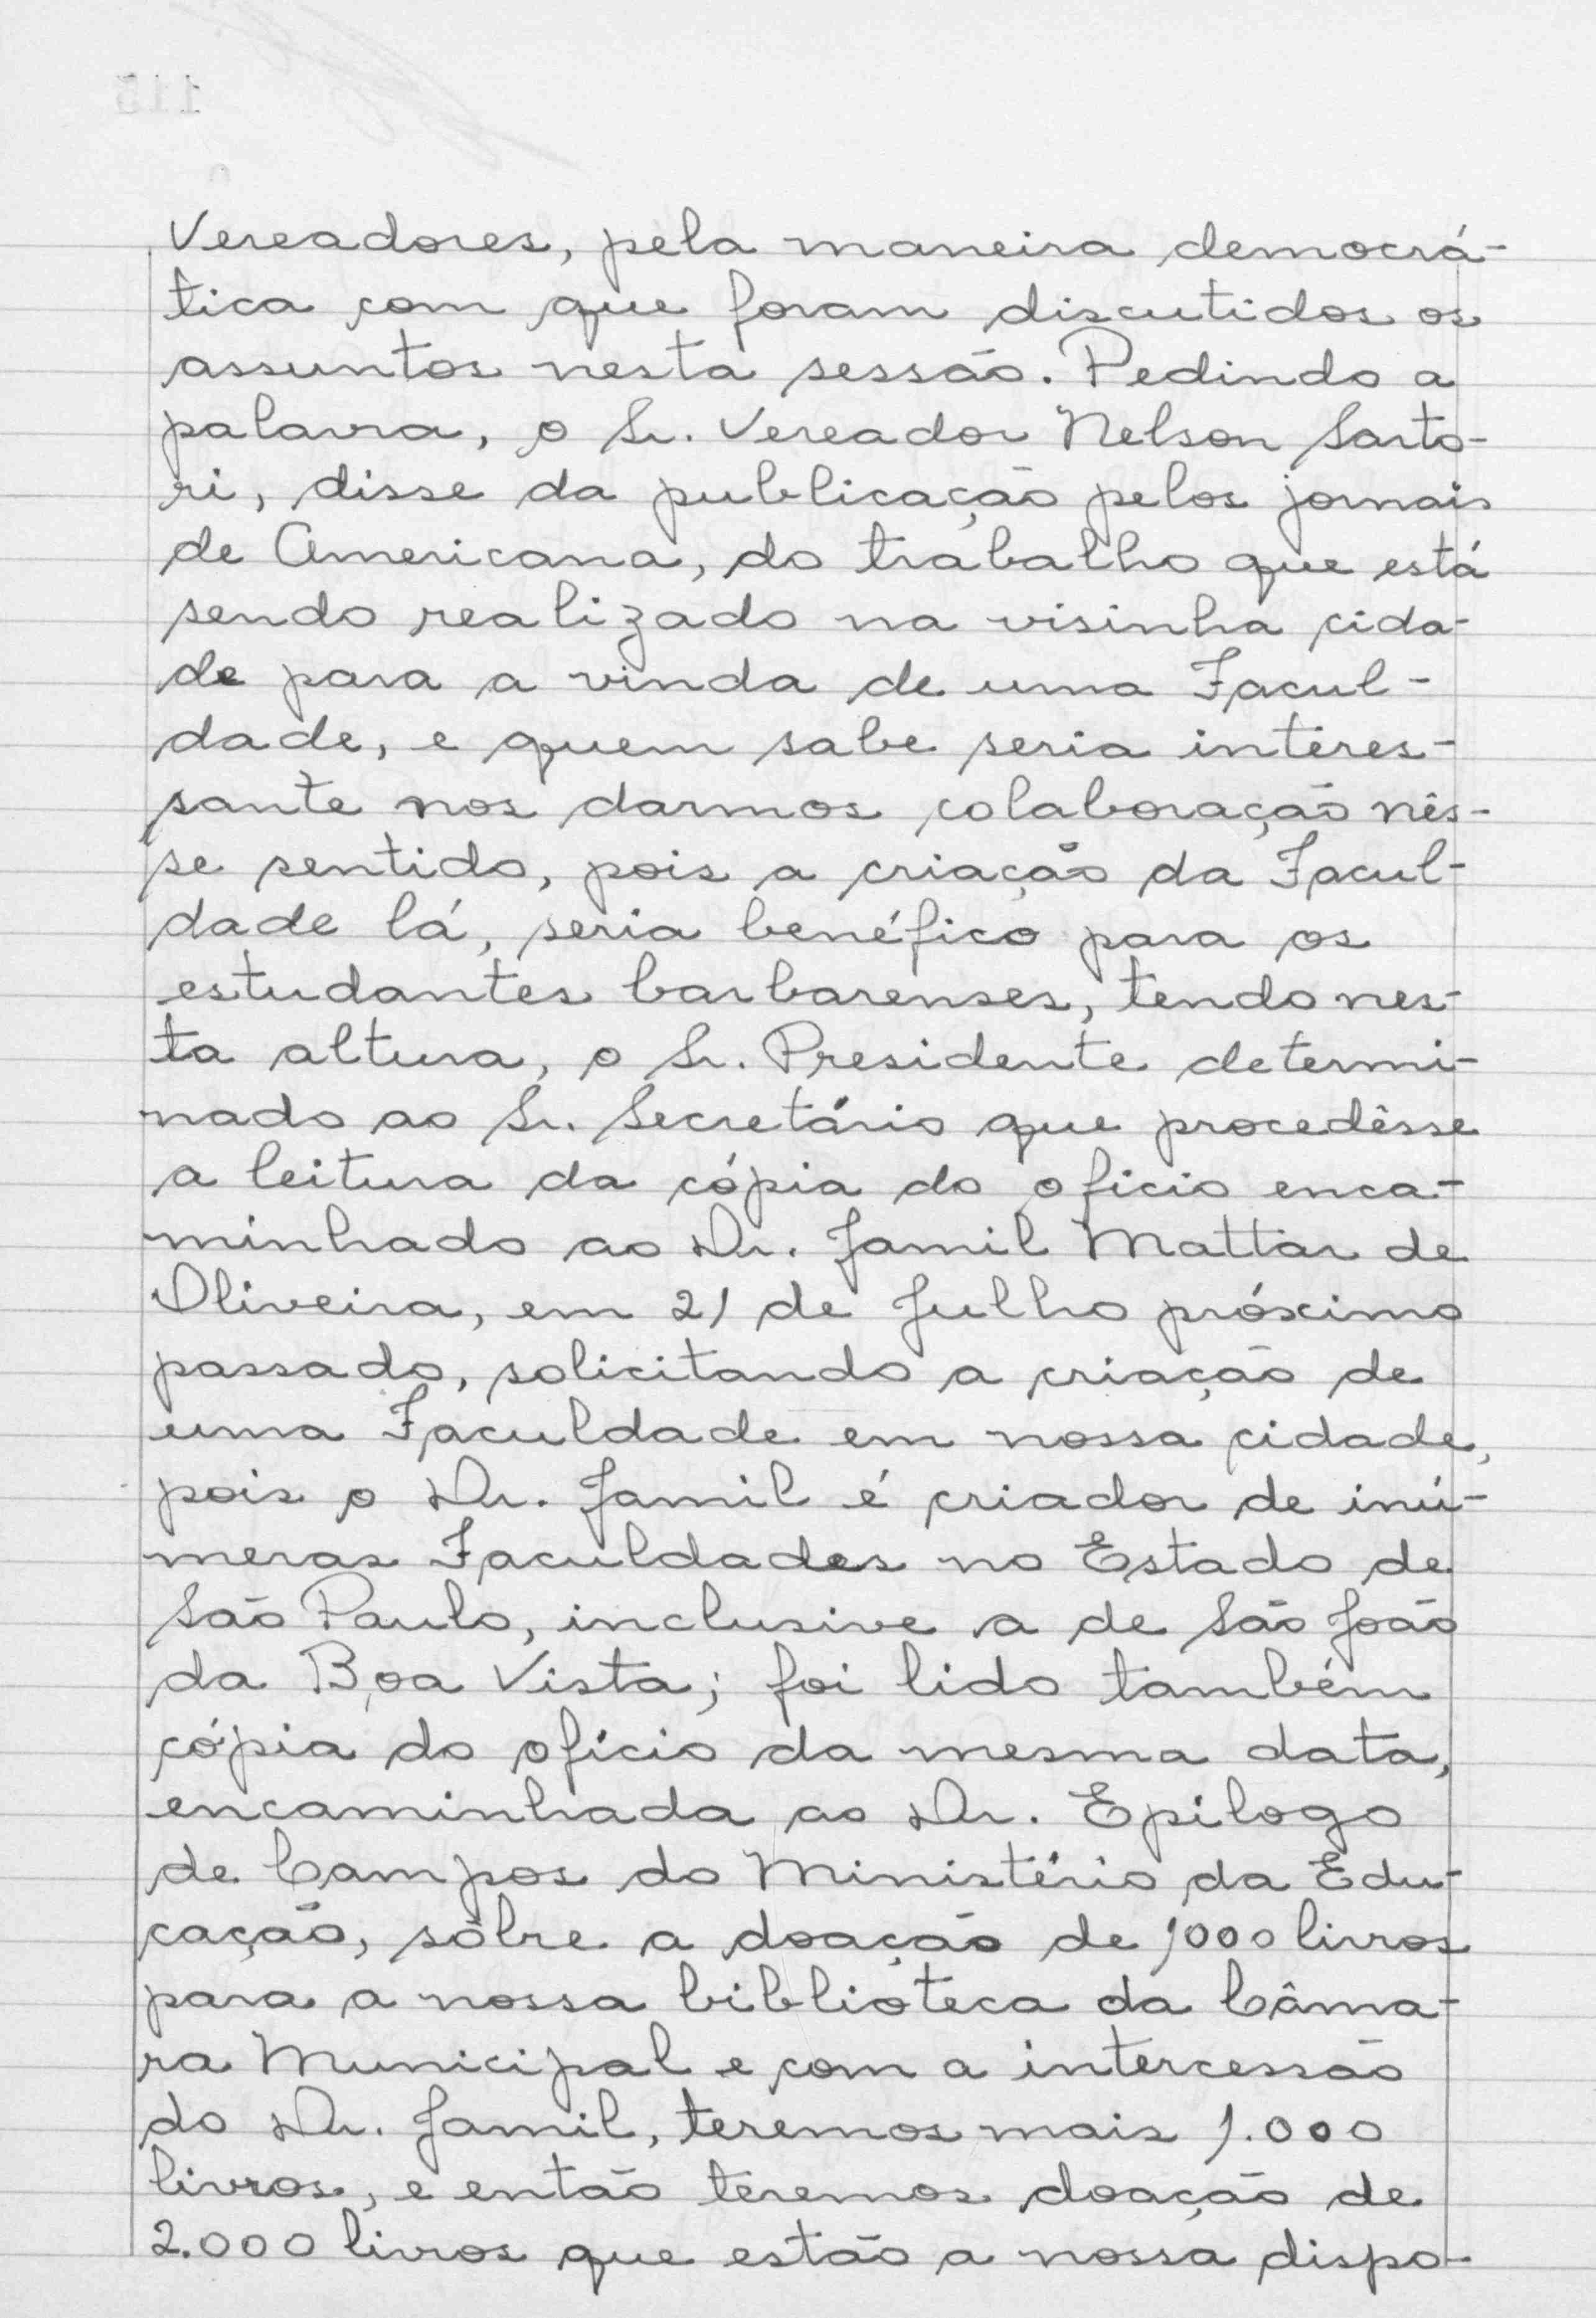 Vereadores, pela maneira democrá-
tica com que foram discutidos os
assuntos nesta sessão. Pedindo a
palavra, o Sr. Vereador Nelson Sarto-
ri, disse da publicação pelos jornais
de Americana, do trabalho que está
sendo realizado na visinha cida-
de para a vinda de uma Facul-
dade, e quem sabe seria interes-
sante nos darmos colaboração nês-
se sentido, pois a criação da Facul-
dade lá, seria benéfico para os
estudantes barbarenses, tendo nes-
ta altura, o Sr. Presidente determi-
nado ao Sr. Secretário que procedêsse
a leitura da cópia do oficio enca-
minhado ao Dr. Jamil Mattar de
Oliveira, em 21 de Julho próximo
passado, solicitando a criação de
uma Faculdade em nossa cidade,
pois o Dr. Jamil é criador de inú-
meras Faculdades no Estado de
São Paulo, inclusive a de São João
da Boa Vista; foi lido também
cópia do ofício da mesma data,
encaminhada ao Dr. Epilogo
de Campos do Ministério da Edu-
cação, sôbre a doação de 1000 livros
para a nossa biblioteca da Câma-
ra Municipal e com a intercessão
do Dr. Jamil, teremos mais 1.000
livros, e então teremos doação de
2.000 livros que estão a nossa dispo-